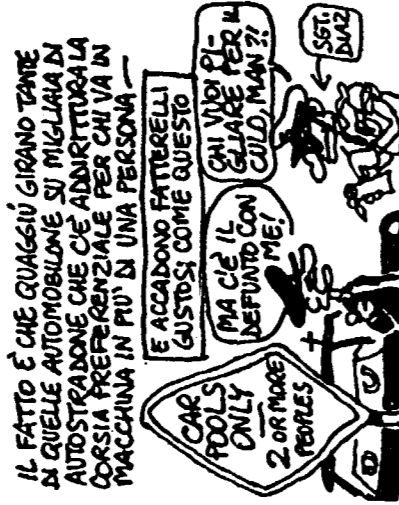 IL FATTO È CHE QUAGGIÚ GIRANO TANTE
DI QUELLE AUTOMOBILONE SU MIGLIAIA DI
AUTOSTRADONE CHE C'E' ADDIRITTURA LA
CORSIA PREFERENZIALE PER CHI VA IN
MACCHINA IN PIU' DI UNA PERSONA —
E ACCADONO FATTERELLI
GUSTOSI COME QUESTO
CAR
POOLS
ONLY
2 OR MORE
PEOPLES
MA C'È IL
DEFUNTO CON
ME!
CHI VUOI PI-
GLIARE PER IL
CULO, MAN?!
SGT.
DIAZ